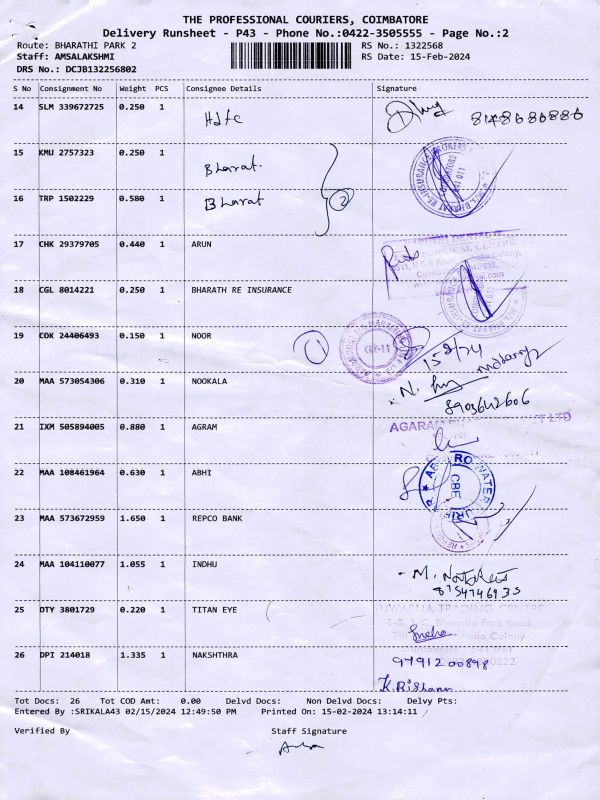 THE PROFESSIONAL COURIERS, COIMBATORE
Delivery Runsheet - P43 - Phone No.:0422-3505555 - Page No.:2
Route: BHARATHI PARK 2 RS No.: 1322568
Staff: AMSALAKSHMI RS Date: 15-Feb-2024
DRS No.: DCJB132256802
S No Consignment No Weight PCS Consignee Details Signature
14 SLM 339672725 0.250 1 Hdfc 8148686886
15 KMU 2757323 0.250 1 Bharat.
16 TRP 1502229 0.580 1 Bharat 2
17 CHK 29379705 0.440 1 ARUN
18 CGL 8014221 0.250 1 BHARATH RE INSURANCE
19 COK 24406493 0.150 1 NOOR 1 15/2/24
20 MAA 573054306 0.310 1 NOOKALA
8903642606
21 IXM 505894005 0.880 1 AGRAM AGARAM
22 MAA 108461964 0.630 1 ABHI WATER CBE
23 MAA 573672959 1.650 1 REPCO BANK
24 MAA 104110077 1.055 1 INDHU M.
8754746935
25 DTY 3801729 0.220 1 TITAN EYE SUWARNA TRADING CENTRE
Bharathi Park Road
Colony
26 DPI 214018 1.335 1 NAKSHTHRA 9791200898
Tot Docs: 26 Tot COD Amt: 0.00 Delvd Docs: Non Delvd Docs: Delvy Pts:
Entered By :SRIKALA43 02/15/2024 12:49:50 PM Printed On: 15-02-2024 13:14:11
Verified By Staff Signature